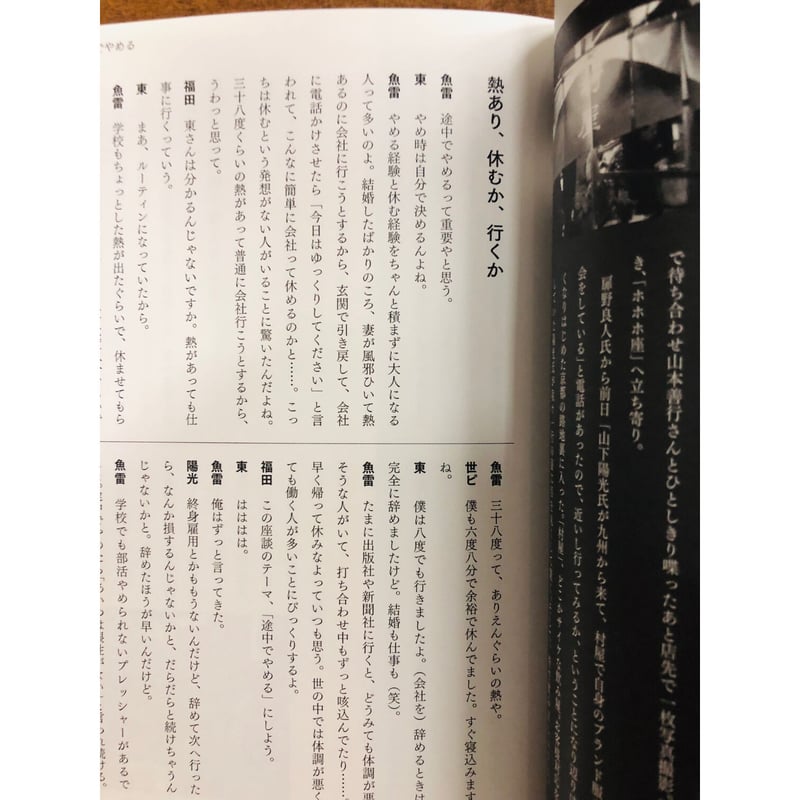 でやめる
熱あり、休むか、行くか
魚雷　途中でやめるって重要やと思う。
東　やめ時は自分で決めるんよね。
魚雷　やめる経験と休む経験をちゃんと積まずに大人になる
人って多いのよ。結婚したばかりのころ、妻が風邪ひいて熱
あるのに会社に行こうとするから、玄関で引き戻して、会社
に電話かけさせたら「今日はゆっくりしてください」と言
われて、こんなに簡単に会社って休めるのかと……。こっ
ちは休むという発想がない人がいることに驚いたんだよね。
三十八度くらいの熱があって普通に会社行こうとするから、
うわっと思って。
福田　東さんは分かるんじゃないですか。熱があっても仕
事に行くっていう。
東　まあ、ルーティンになっていたから。
魚雷　学校もちょっとした熱が出たぐらいで、休ませてもら
魚雷　三十八度って、ありえんぐらいの熱や。
世ピ　僕も六度八分で余裕で休んでました。すぐ寝込みます
ね。
東　僕は八度でも行きましたよ。（会社を）辞めるときは
完全に辞めましたけど。結婚も仕事も（笑）。
魚雷　たまに出版社や新聞社に行くと、どうみても体調が悪
そうな人がいて、打ち合わせ中もずっと咳込んでたり……。
早く帰って休みなよっていつも思う。世の中では体調が悪く
ても働く人が多いことにびっくりするよ。
福田　この座談のテーマ、「途中でやめる」にしよう。
東　はははは。
魚雷　俺はずっと言ってきた。
陽光　終身雇用とかももうないんだけど、辞めて次へ行った
ら、なんか損するんじゃないかと、だらだらと続けちゃうん
じゃないかと。辞めたほうが早いんだけど。
魚雷　学校でも部活やめられないプレッシャーがあるで
で待ち合わせ山本善行さんとひとしきり喋ったあと店先で一枚写真撮影
き、「ホホホ座」へ立ち寄り。
扉野良人氏から前日「山下陽光氏が九州から来て、村屋で自身のブランド展
会をしている」と電話があったので、近いし行ってみるか、ということになり辺り
くなりはじめた京都の路地裏に入った「村屋」